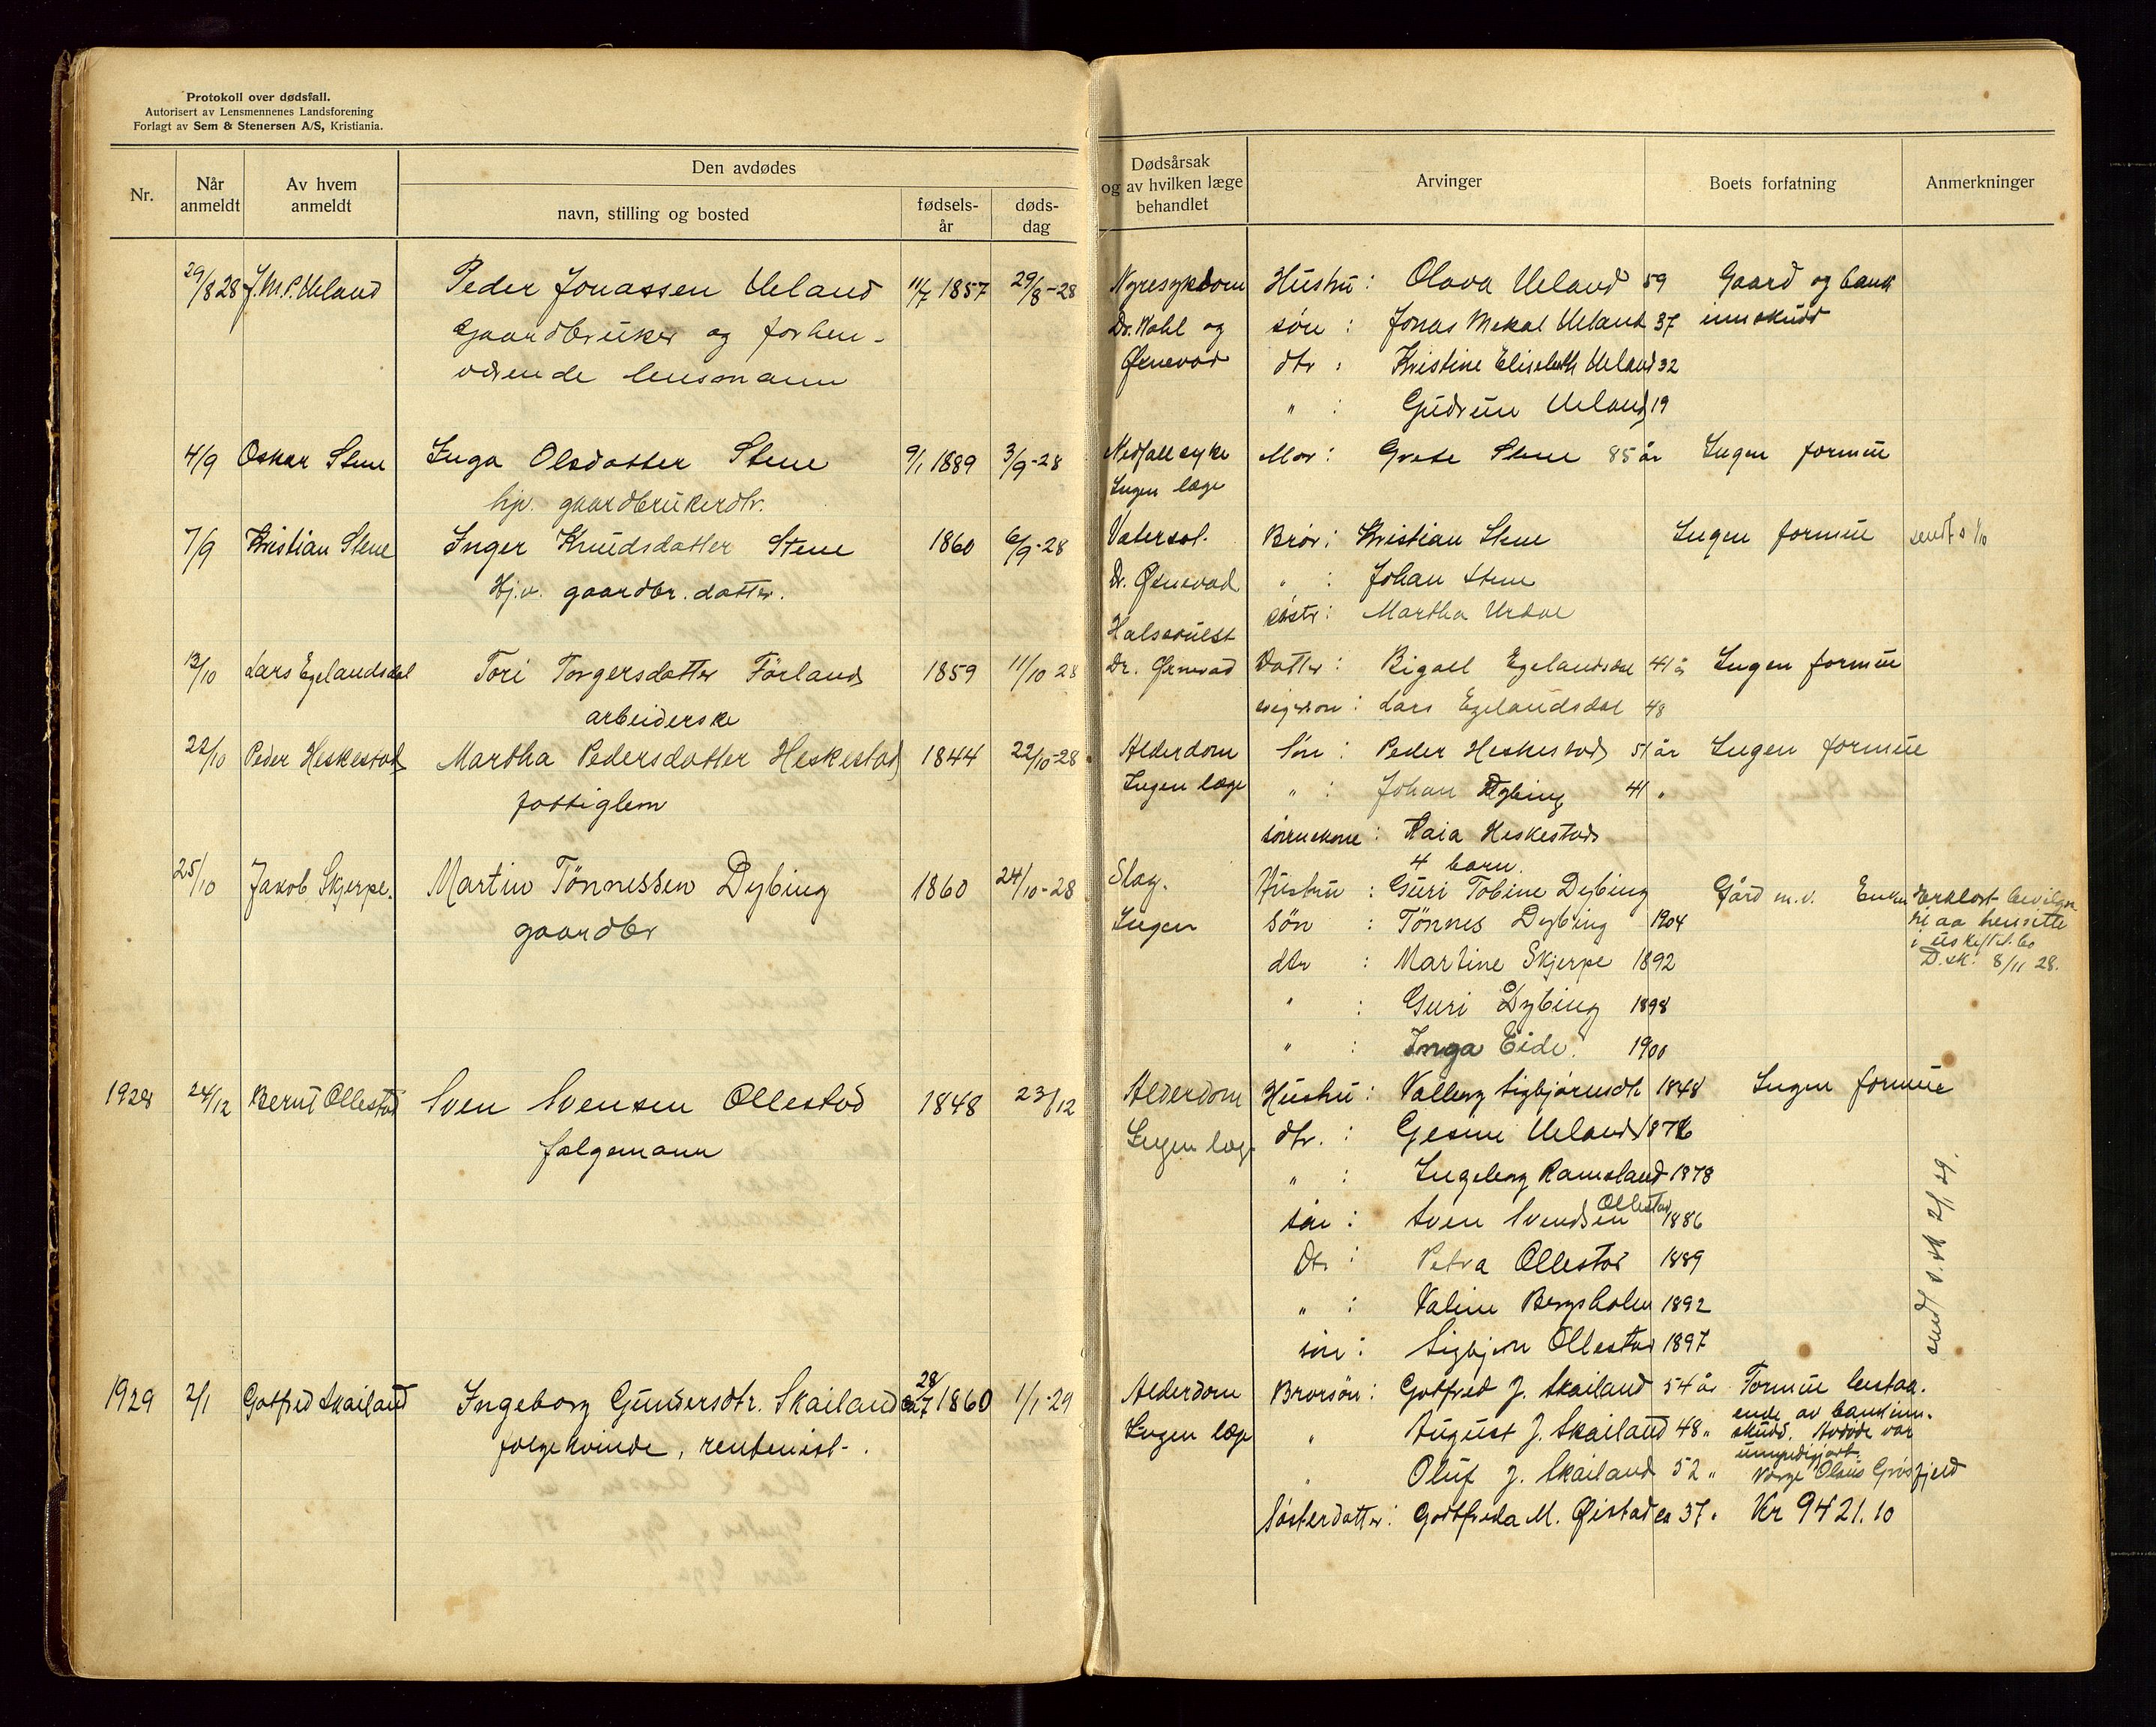 Protokoll over dødsfall.
Autorisert av Lensmennenes Landsforening
Forlagt av Sem & Stenersen A/S, Kristiania.
Nr.
Når anmeldt
Av hvem anmeldt
Den avdødes
navn, stilling og bosted
fødsels-år
døds-dag
Dødsårsak og av hvilken læge behandlet
Arvinger
Boets forfatning
Anmerkninger
29/8 28 J.M.P. Ueland Peder Jonassen Ueland 11/7 1857 29/8-28 Nyresykdom Hustru: Olava Ueland 59 Gaard og bank
Gaardbruker og forhen- Dr. Kahl og søn: Jonas Mekal Ueland 37 innskudd
værende lensmann Øenevad dtr: Kristine Elisebeth Ueland 32
" : Gudrun Ueland 19
4/9 Oskar Stene Inga Olsdatter Stene 9/1 1889 3/9-28 Nedfallsyke Mor: Grete Stene 85 år Ingen formue
hjv. gaardbrukerdtr. Ingen læge
7/9 Kristian Stene Inger Knudsdatter Stene 1860 6/9-28 Vatersot. Bror: Kristian Stene Ingen formue sendt s 1/10
Hj.v. gaardbr. datter. Dr. Øenevad " : Johan Stene
søstr: Martha Urdal
Halssvulst
13/10 Lars Egelandsdal Tori Torgersdatter Förland 1859 11/10 28 Dr. Øenevad Datter: Bigael Egelandsdal 44 å Ingen formue
arbeiderske svigerson: Lars Egelandsdal 48
22/10 Peder Heskestad Martha Pedersdatter Heskestad 1844 22/10-28 Alderdom Sön: Peder Heskestad 51 år Ingen formue
fattiglem Ingen læge " : Johan Dybing 41 "
sönnekone: Kaia Heskestad
4 barn.
25/10 Jakob Skjerpe. Martin Tönnessen Dybing 1860 24/10-28 Slag. Hustru: Guri Tobine Dybing Gård m.v. Enken erklært bevilgn
gaardbr Ingen Sön: Tönnes Dybing 1904 til aa hensitte
i uskiftet bo
dtr: Martine Skjerpe 1892 D.sk. 8/11 28.
" : Guri Dybing 1898
" : Inga Eide. 1900
1928 24/12 Bernt Ollestad Sven Svensen Ollestad 1848 23/12 Alderdom Hustru: Valborg Sigbjørnsdtr 1848 Ingen formue
følgemann Ingen læge dtr.: Gesine Ueland 1876
" : Ingeborg Ramsland 1878
sön: Sven Svendsen Ollestad 1886
Dtr: Petra Ollestad 1889
" : Valine Bergsholm 1892
sön: Sigbjørn Ollestad 1897
sendt s.sk 2/1 29.
1929 2/1 Gotfred Skailand Ingeborg Gundersdtr. Skailand 28/7 1860 1/1-29 Alderdom Brorsön: Gotfred J. Skailand 54 år Formue bestaa-
ende av bankinn-
følgekvinde, rentenist. Ingen læge " August J. Skailand 48 " skudd. Avdöde var
umyndigjort.
" Oluf J. Skailand 52 " Verge Olaus Grøsfjeld
Söster datter: Godtfreda M. Øistad ca 37. Kr 9421.10